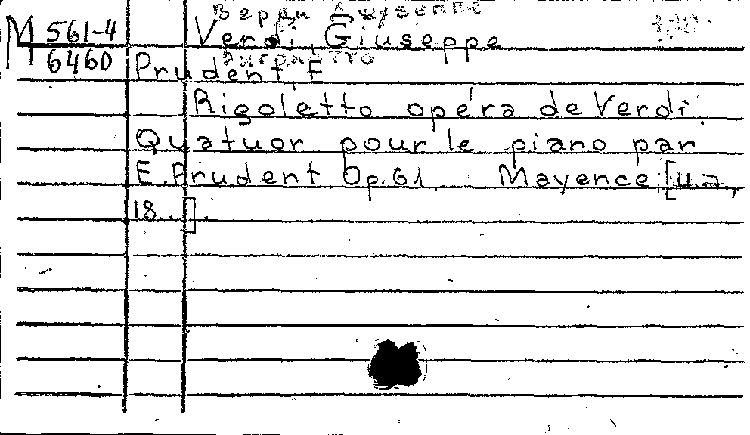 Верди Джузеппе
М 561-4 Verdi, Giuseppe
6460 Риголетто
Prudent, E
Rigoletto opéra de Verdi.
Quatuor pour le piano par
E. Prudent Op.61. Mayence [u.a.,
18..].